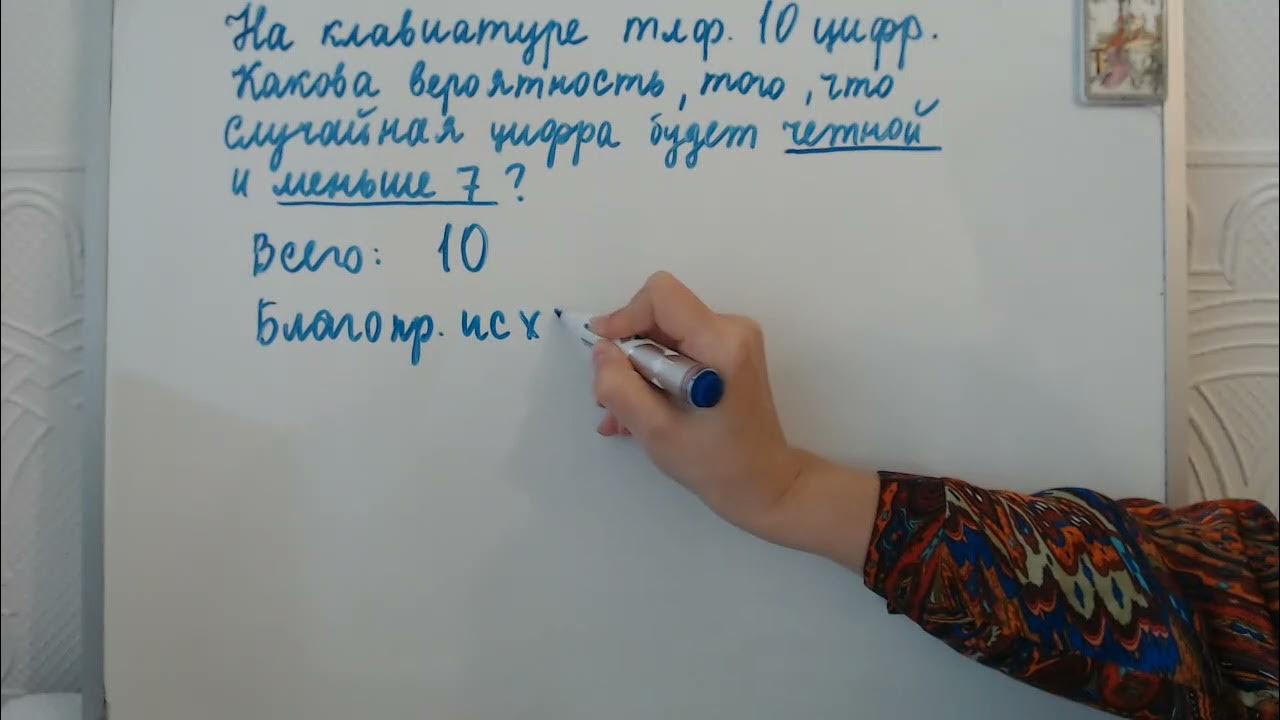 На клавиатуре тлф. 10 цифр.
Какова вероятность, того, что
случайная цифра будет четной
и меньше 7?
Всего: 10
Благопр. исх